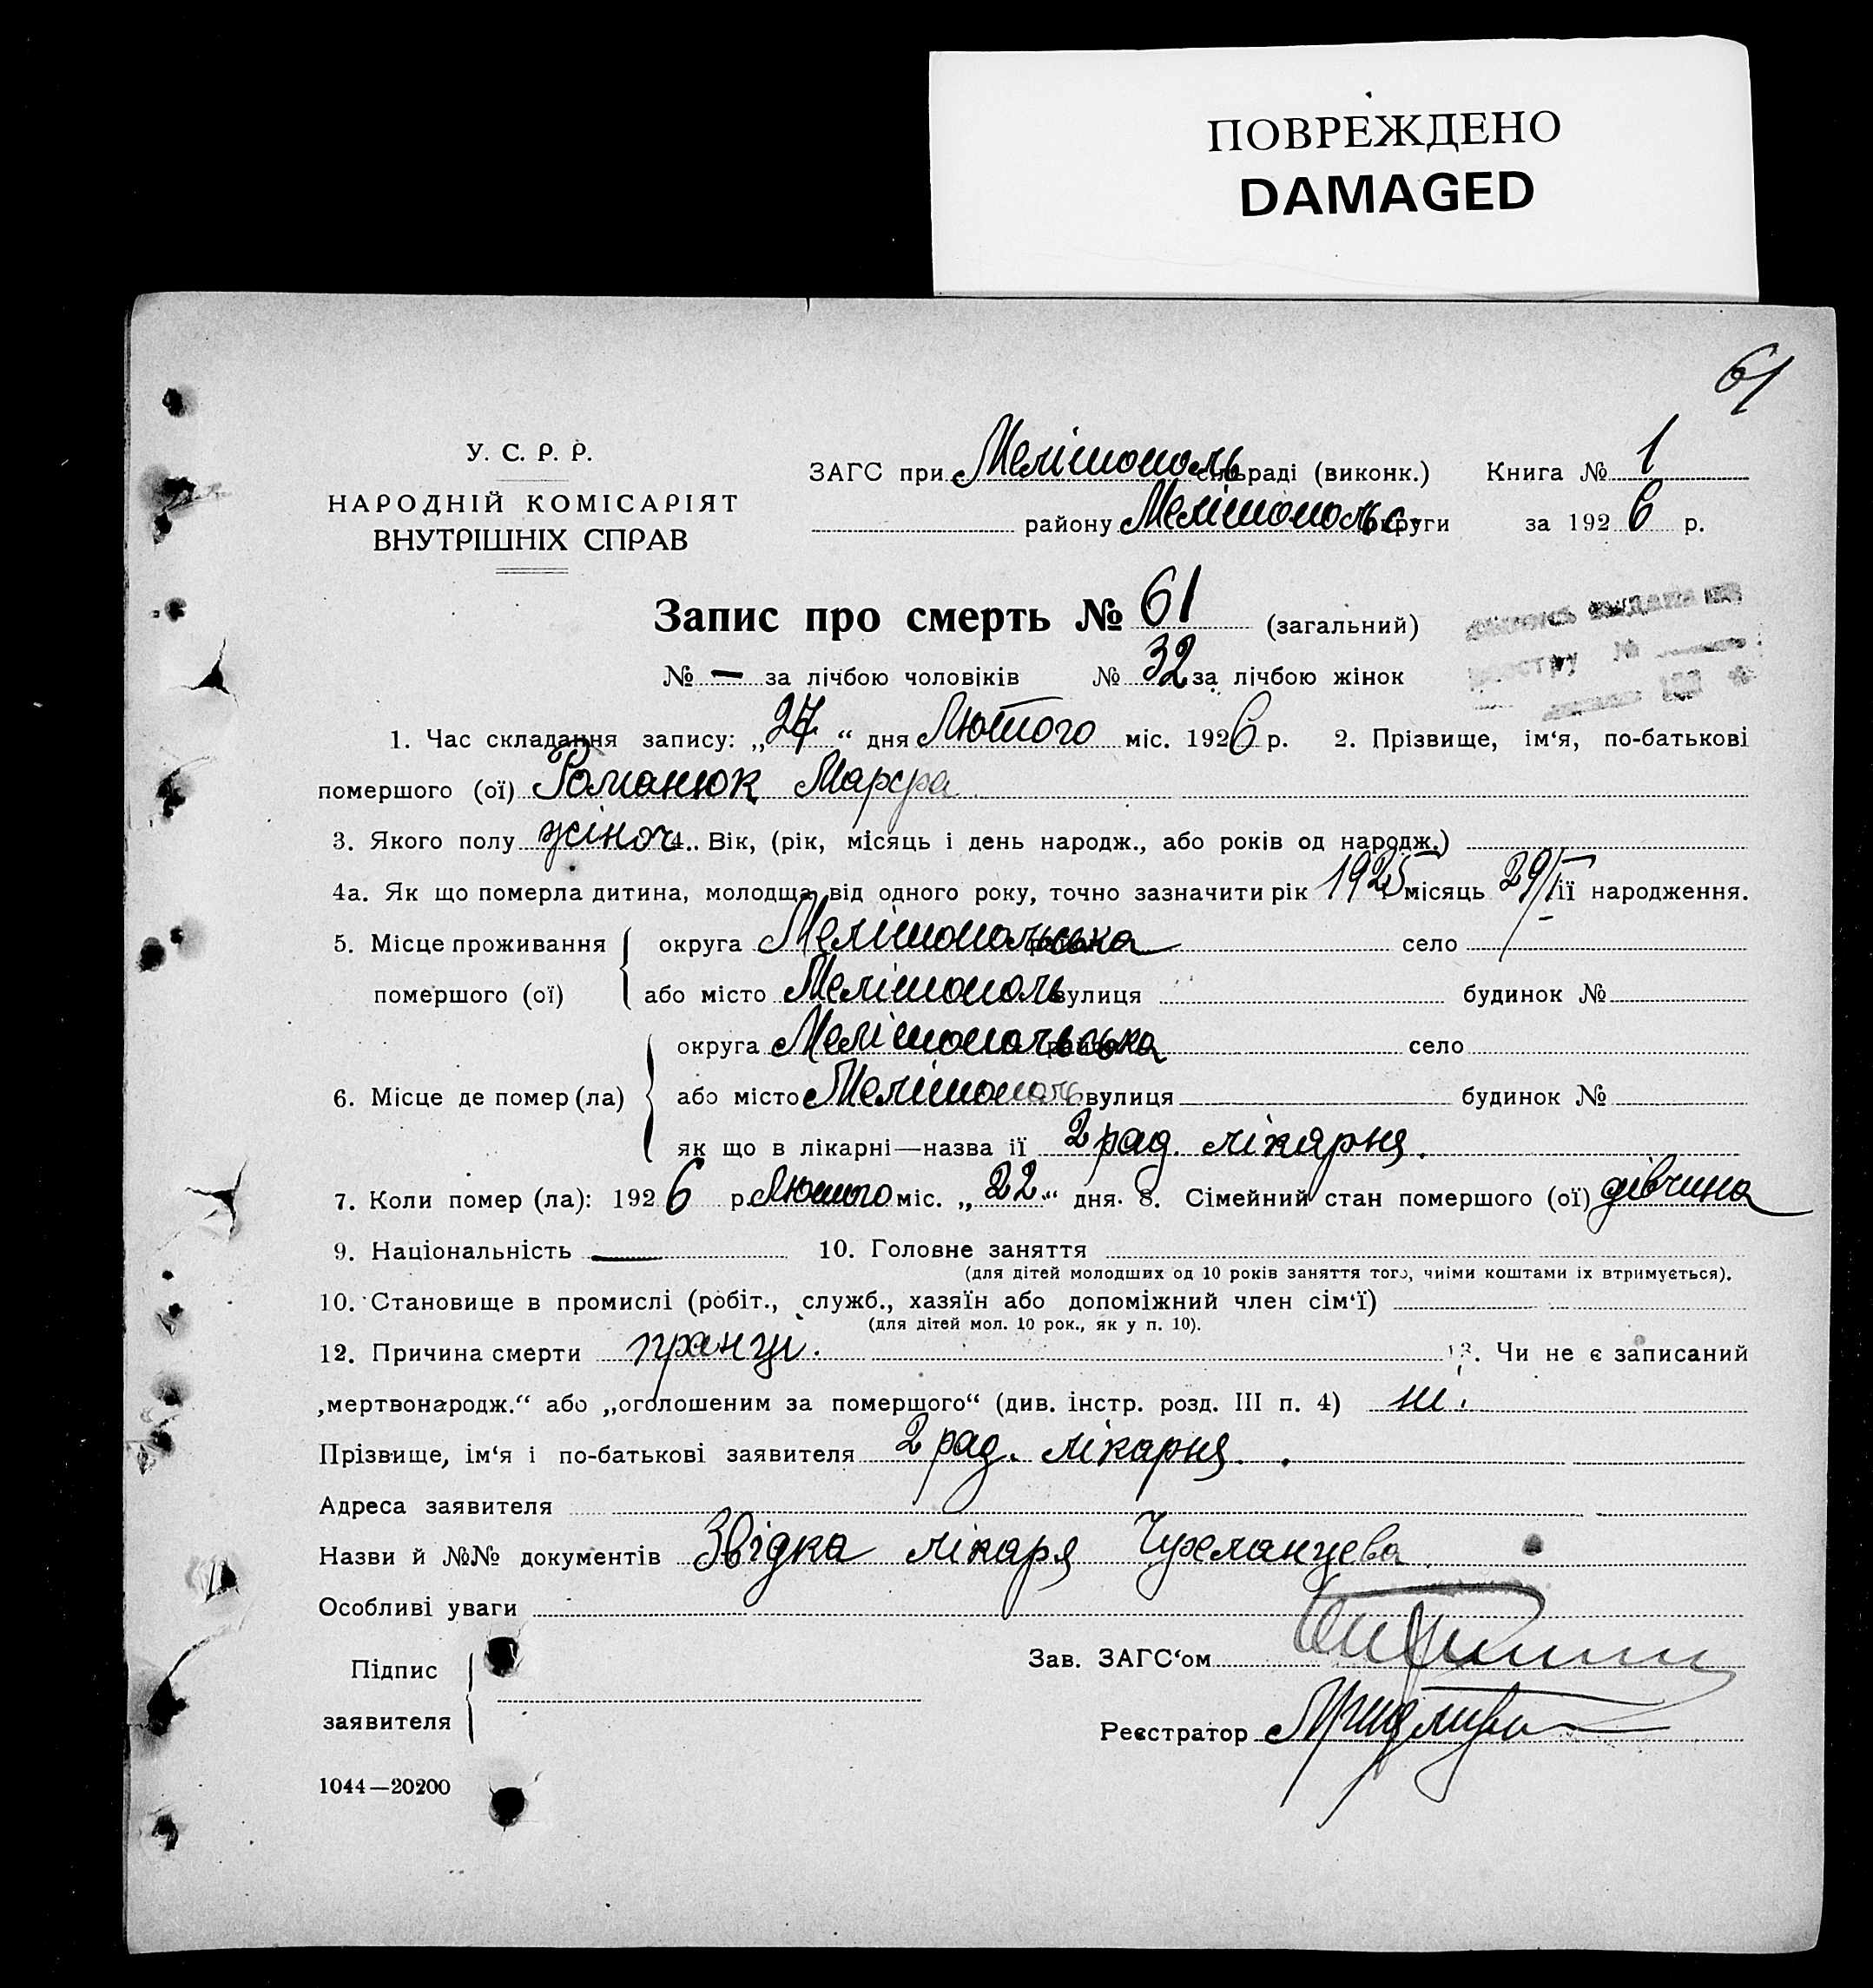 ПОВРЕЖДЕНО
DAMAGED
61
У. С. Р. Р.
НАРОДНІЙ КОМІСАРІЯТ
ВНУТРІШНІХ СПРАВ
ЗАГС при Мелітополь сільраді (виконк.) Книга № 1
району Мелітопольс. округи за 1926 р.
Запис про смерть № 61 (загальний)
№ — за лічбою чоловіків № 32 за лічбою жінок
1. Час складання запису: „27“ дня Лютого міс. 1926 р. 2. Прізвище, ім‘я, по-батькові
помершого (ої) Романюк Марфа
3. Якого полу жіноч. 4. Вік, (рік, місяць і день народж., або років од народж.)
4а. Як що померла дитина, молодща від одного року, точно зазначити рік 1925 місяць 29/I її народження.
5. Місце проживання округа Мелітопольська село
помершого (ої) або місто Мелітополь вулиця будинок №
округа Мелітопольська район село
6. Місце де помер (ла) або місто Мелітополь вулиця будинок №
як що в лікарні—назва ії 2 рад. лікарня.
7. Коли помер (ла): 1926 р. Лютого міс. „22“ дня. 8. Сімейний стан помершого (ої) дівчина
9. Національність — 10. Головне заняття
(для дітей молодших од 10 років заняття того, чиіми коштами іх втримується).
10. Становище в промислі (робіт., служб., хазяїн або допоміжний член сім‘ї)
(для дітей мол. 10 рок., як у п. 10).
12. Причина смерти пранці. 13. Чи не є записаний
„мертвонародж.“ або „оголошеним за помершого“ (див. інстр. розд. III п. 4) ні.
Прізвище, ім‘я і по-батькові заявителя 2 рад. лікарня.
Адреса заявителя
Назви й №№ документів Звідка лікаря Чухланцева.
Особливі уваги
Підпис
заявителя
Зав. ЗАГС‘ом
Реєстратор
1044—20200